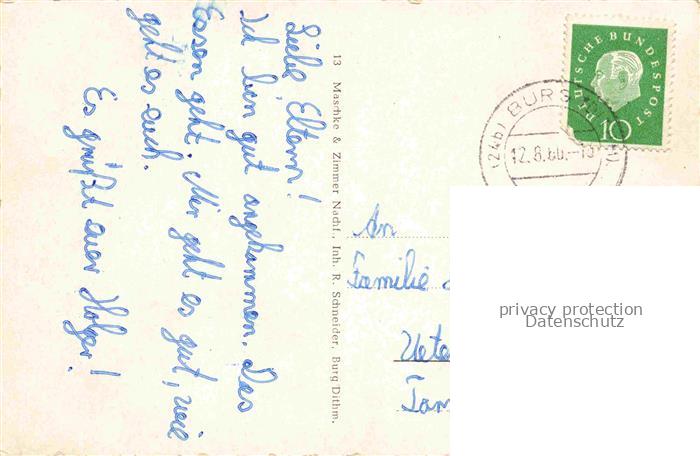 Liebe Eltern!
Ich bin gut angekommen. Das
Essen geht. Mir geht es gut, wie
geht es euch.
Es grüßt euer Holger!
13 Maschke & Zimmer Nachf., Inh. R. Schneider, Burg Dithm.
DEUTSCHE BUNDESPOST
10
(24b) BURG
12.8.60.-
An
Familie
privacy protection
Datenschutz